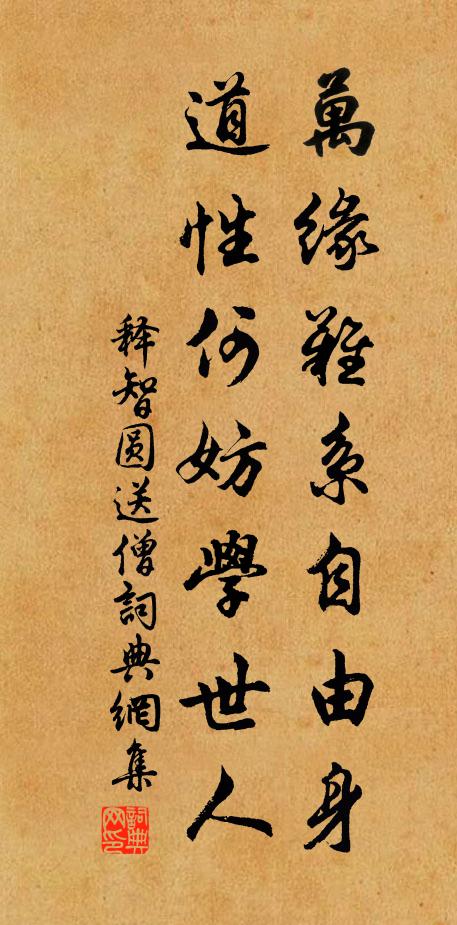 萬緣難系自由身
道性何妨學世人
释智圓送僧詞典網集
詞典網印